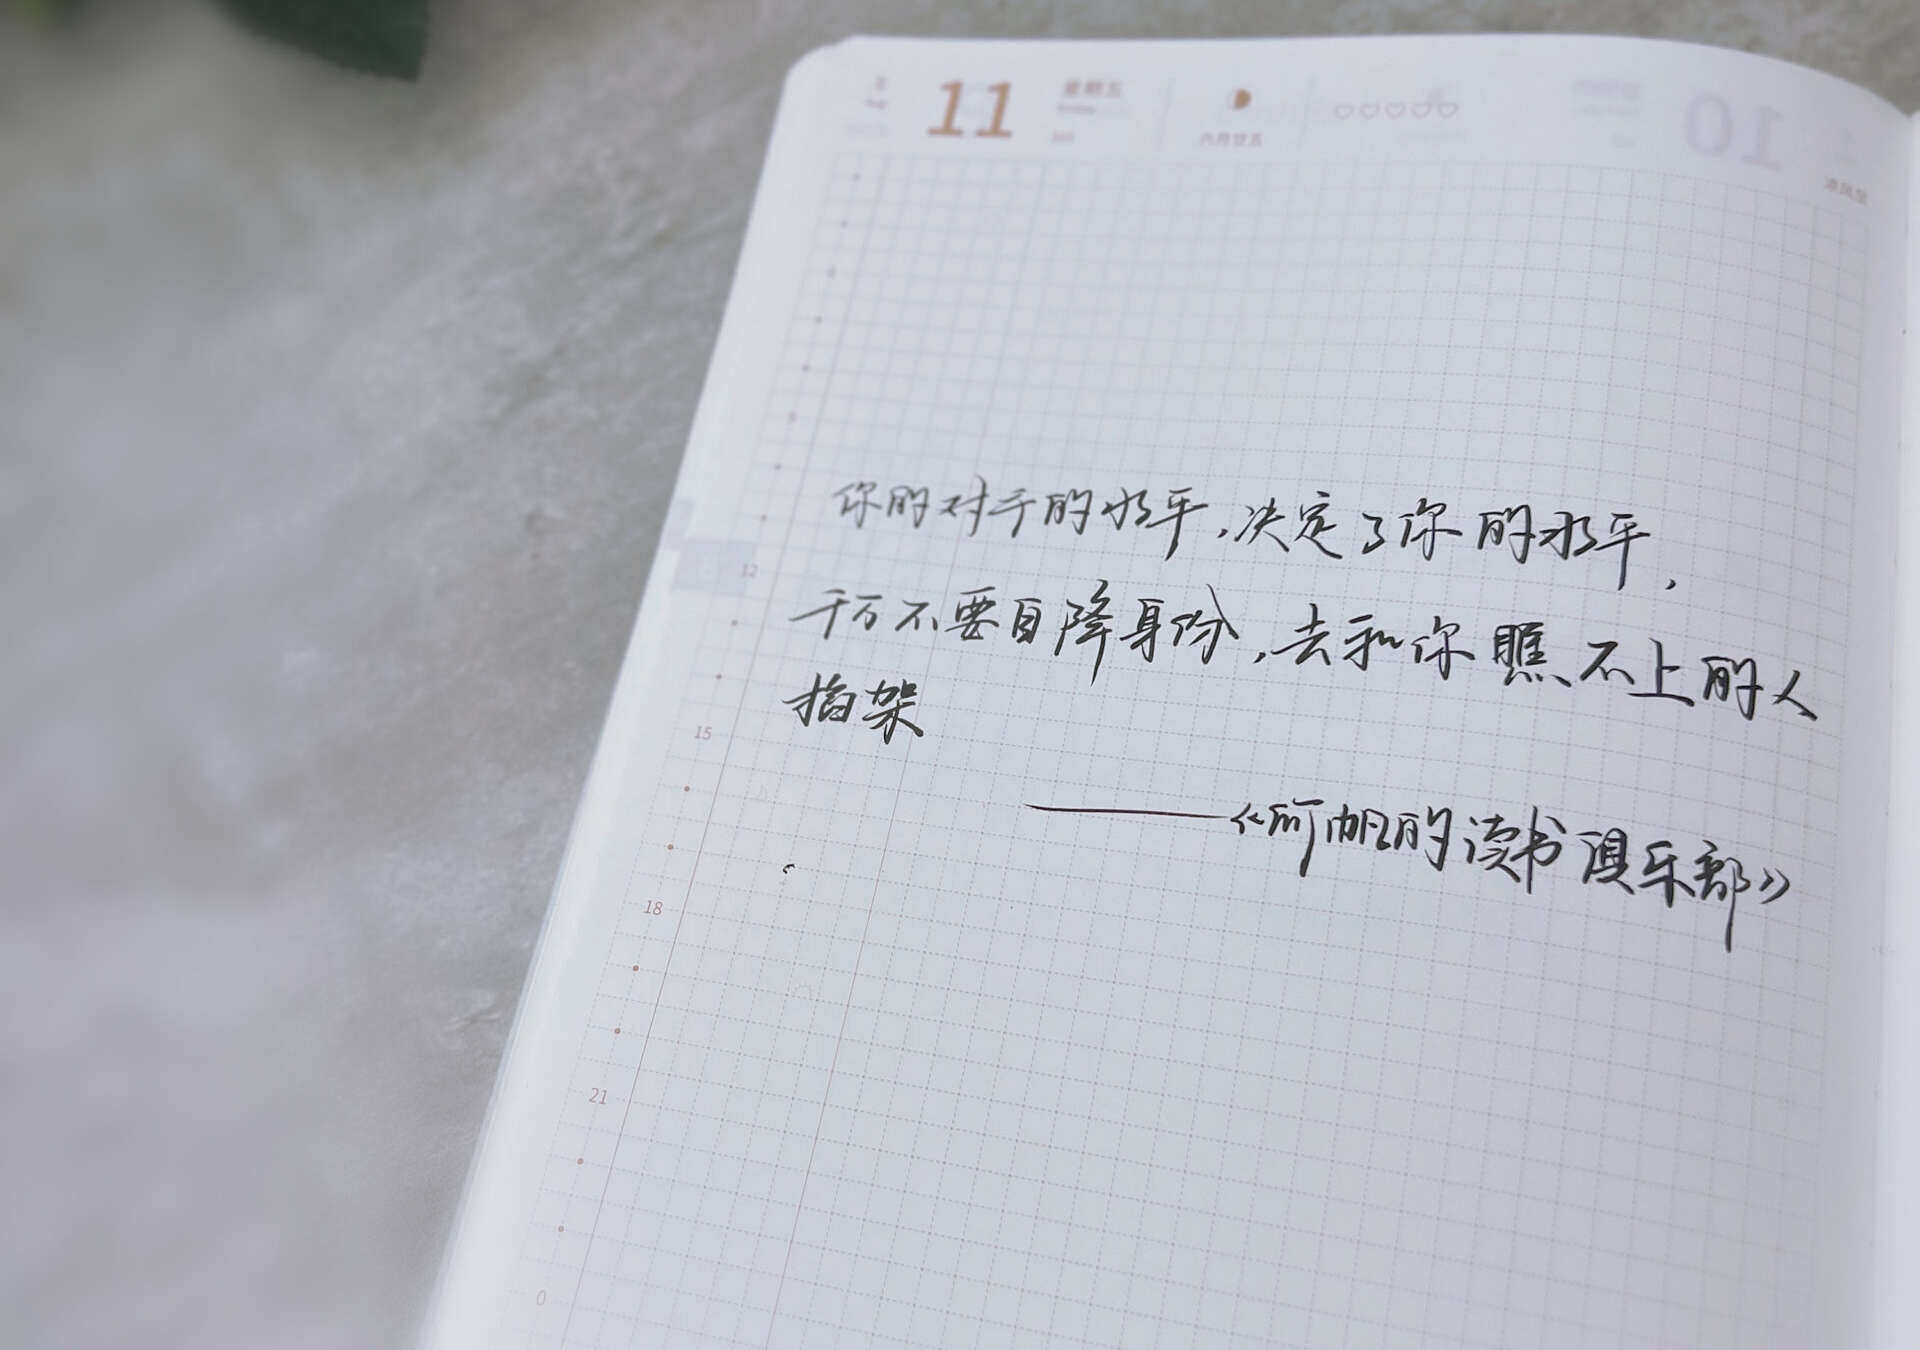 11 星期五 六月廿五
你的对于的水平，决定了你的水平，
千万不要自降身份，去和你瞧不上的人
掐架
——《何帆的读书俱乐部》
12
15
18
21
0